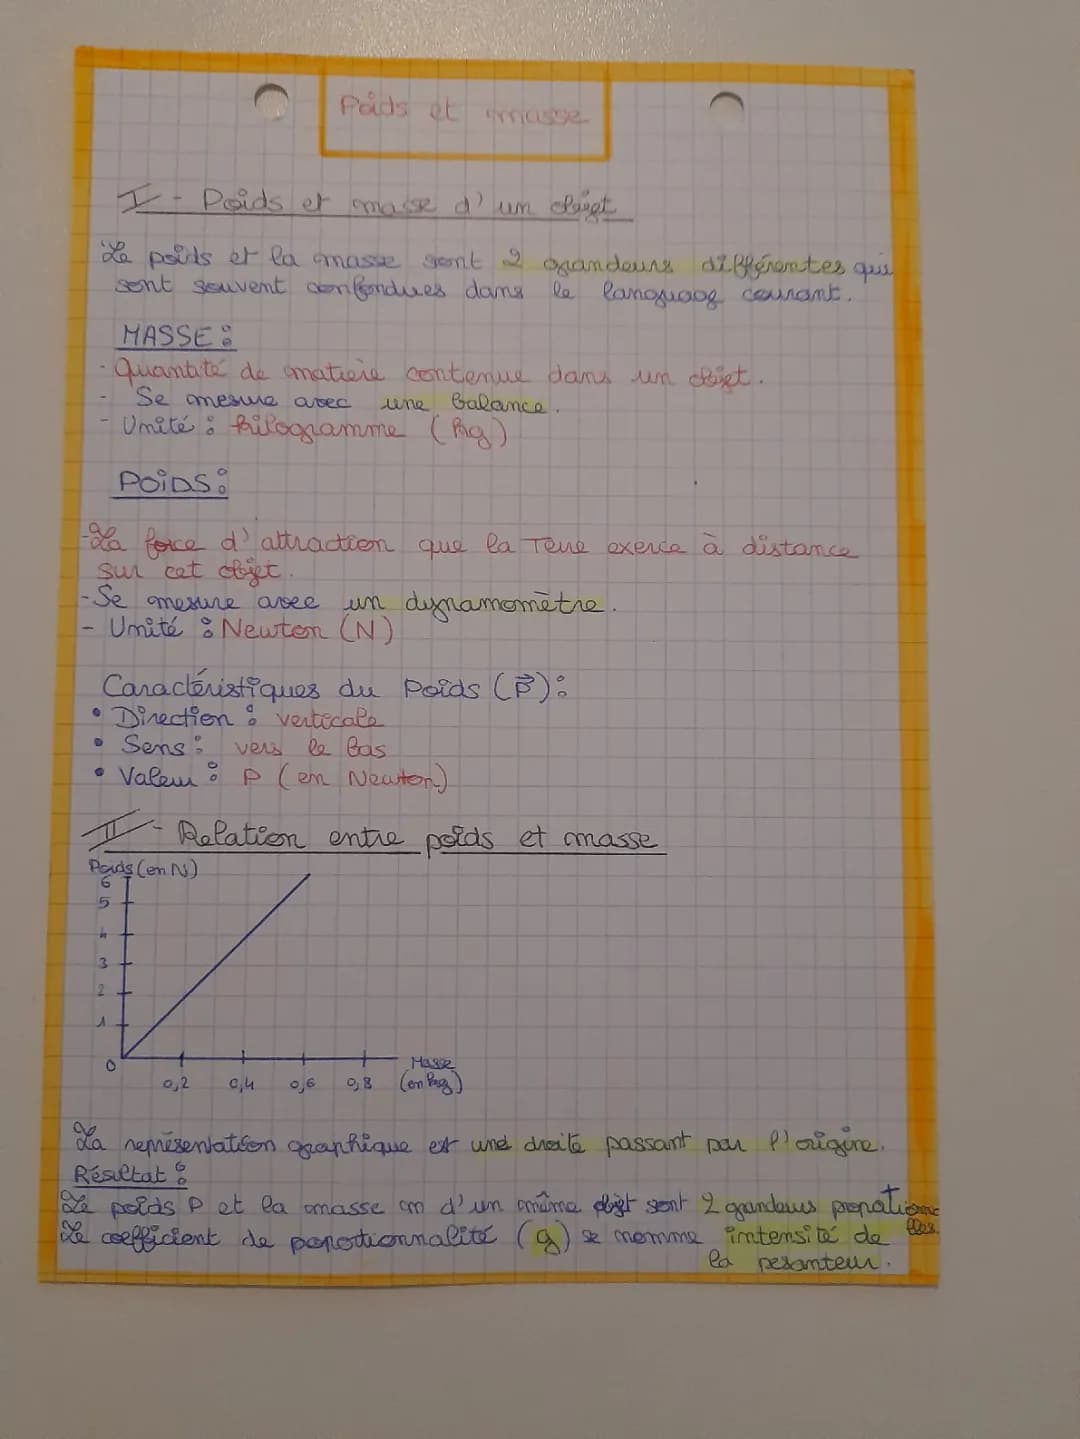 Poids et masse
I - Poids et masse d'un objet
Le poids et la masse sont 2 grandeurs différentes qui
sont souvent confondues dans le language courant.
MASSE :
- Quantité de matière contenue dans un objet.
- Se mesure avec une balance.
- Unité : kilogramme (kg)
POIDS :
- La force d'attraction que la Terre exerce à distance
sur cet objet.
- Se mesure avec un dynamomètre.
- Unité : Newton (N)
Caractéristiques du Poids (P⃗) :
• Direction : verticale
• Sens : vers le bas
• Valeur : P (en Newton)
II - Relation entre poids et masse
Poids (en N)
6
5
4
3
2
1
0
0,2 0,4 0,6 0,8
Masse
(en kg)
La représentation graphique est une droite passant par l'origine.
Résultat :
Le poids P et la masse m d'un même objet sont 2 grandeurs
Le coefficient de (g) se nomme intensité de
la pesanteur.